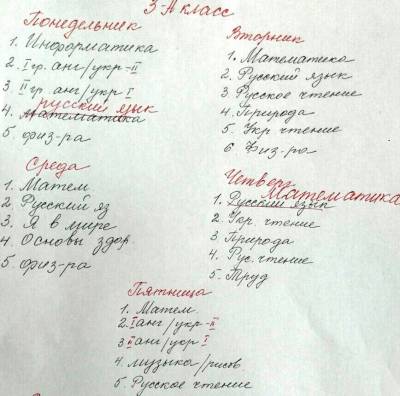 3-А класс
Понедельник
1. Информатика
2. I гр. анг/укр-II
3. II гр. анг/укр I
русский язык
4. Математика
5. физ-ра
Вторник
1. Математика
2. Русский язык
3. Русское чтение
4. Природа
5. Укр чтение
6 Физ-ра
Среда
1. Матем
2. Русский яз
3. Я в мире
4. Основы здор.
5. физ-ра
Четверг
Математика
1. Русский язык
2. Укр. чтение
3 Природа
4. Рус. чтение
5. Труд
Пятница
1. Матем.
2. I анг/укр-II
3 II анг/укр I
4. музыка/рисов
5. Русское чтение